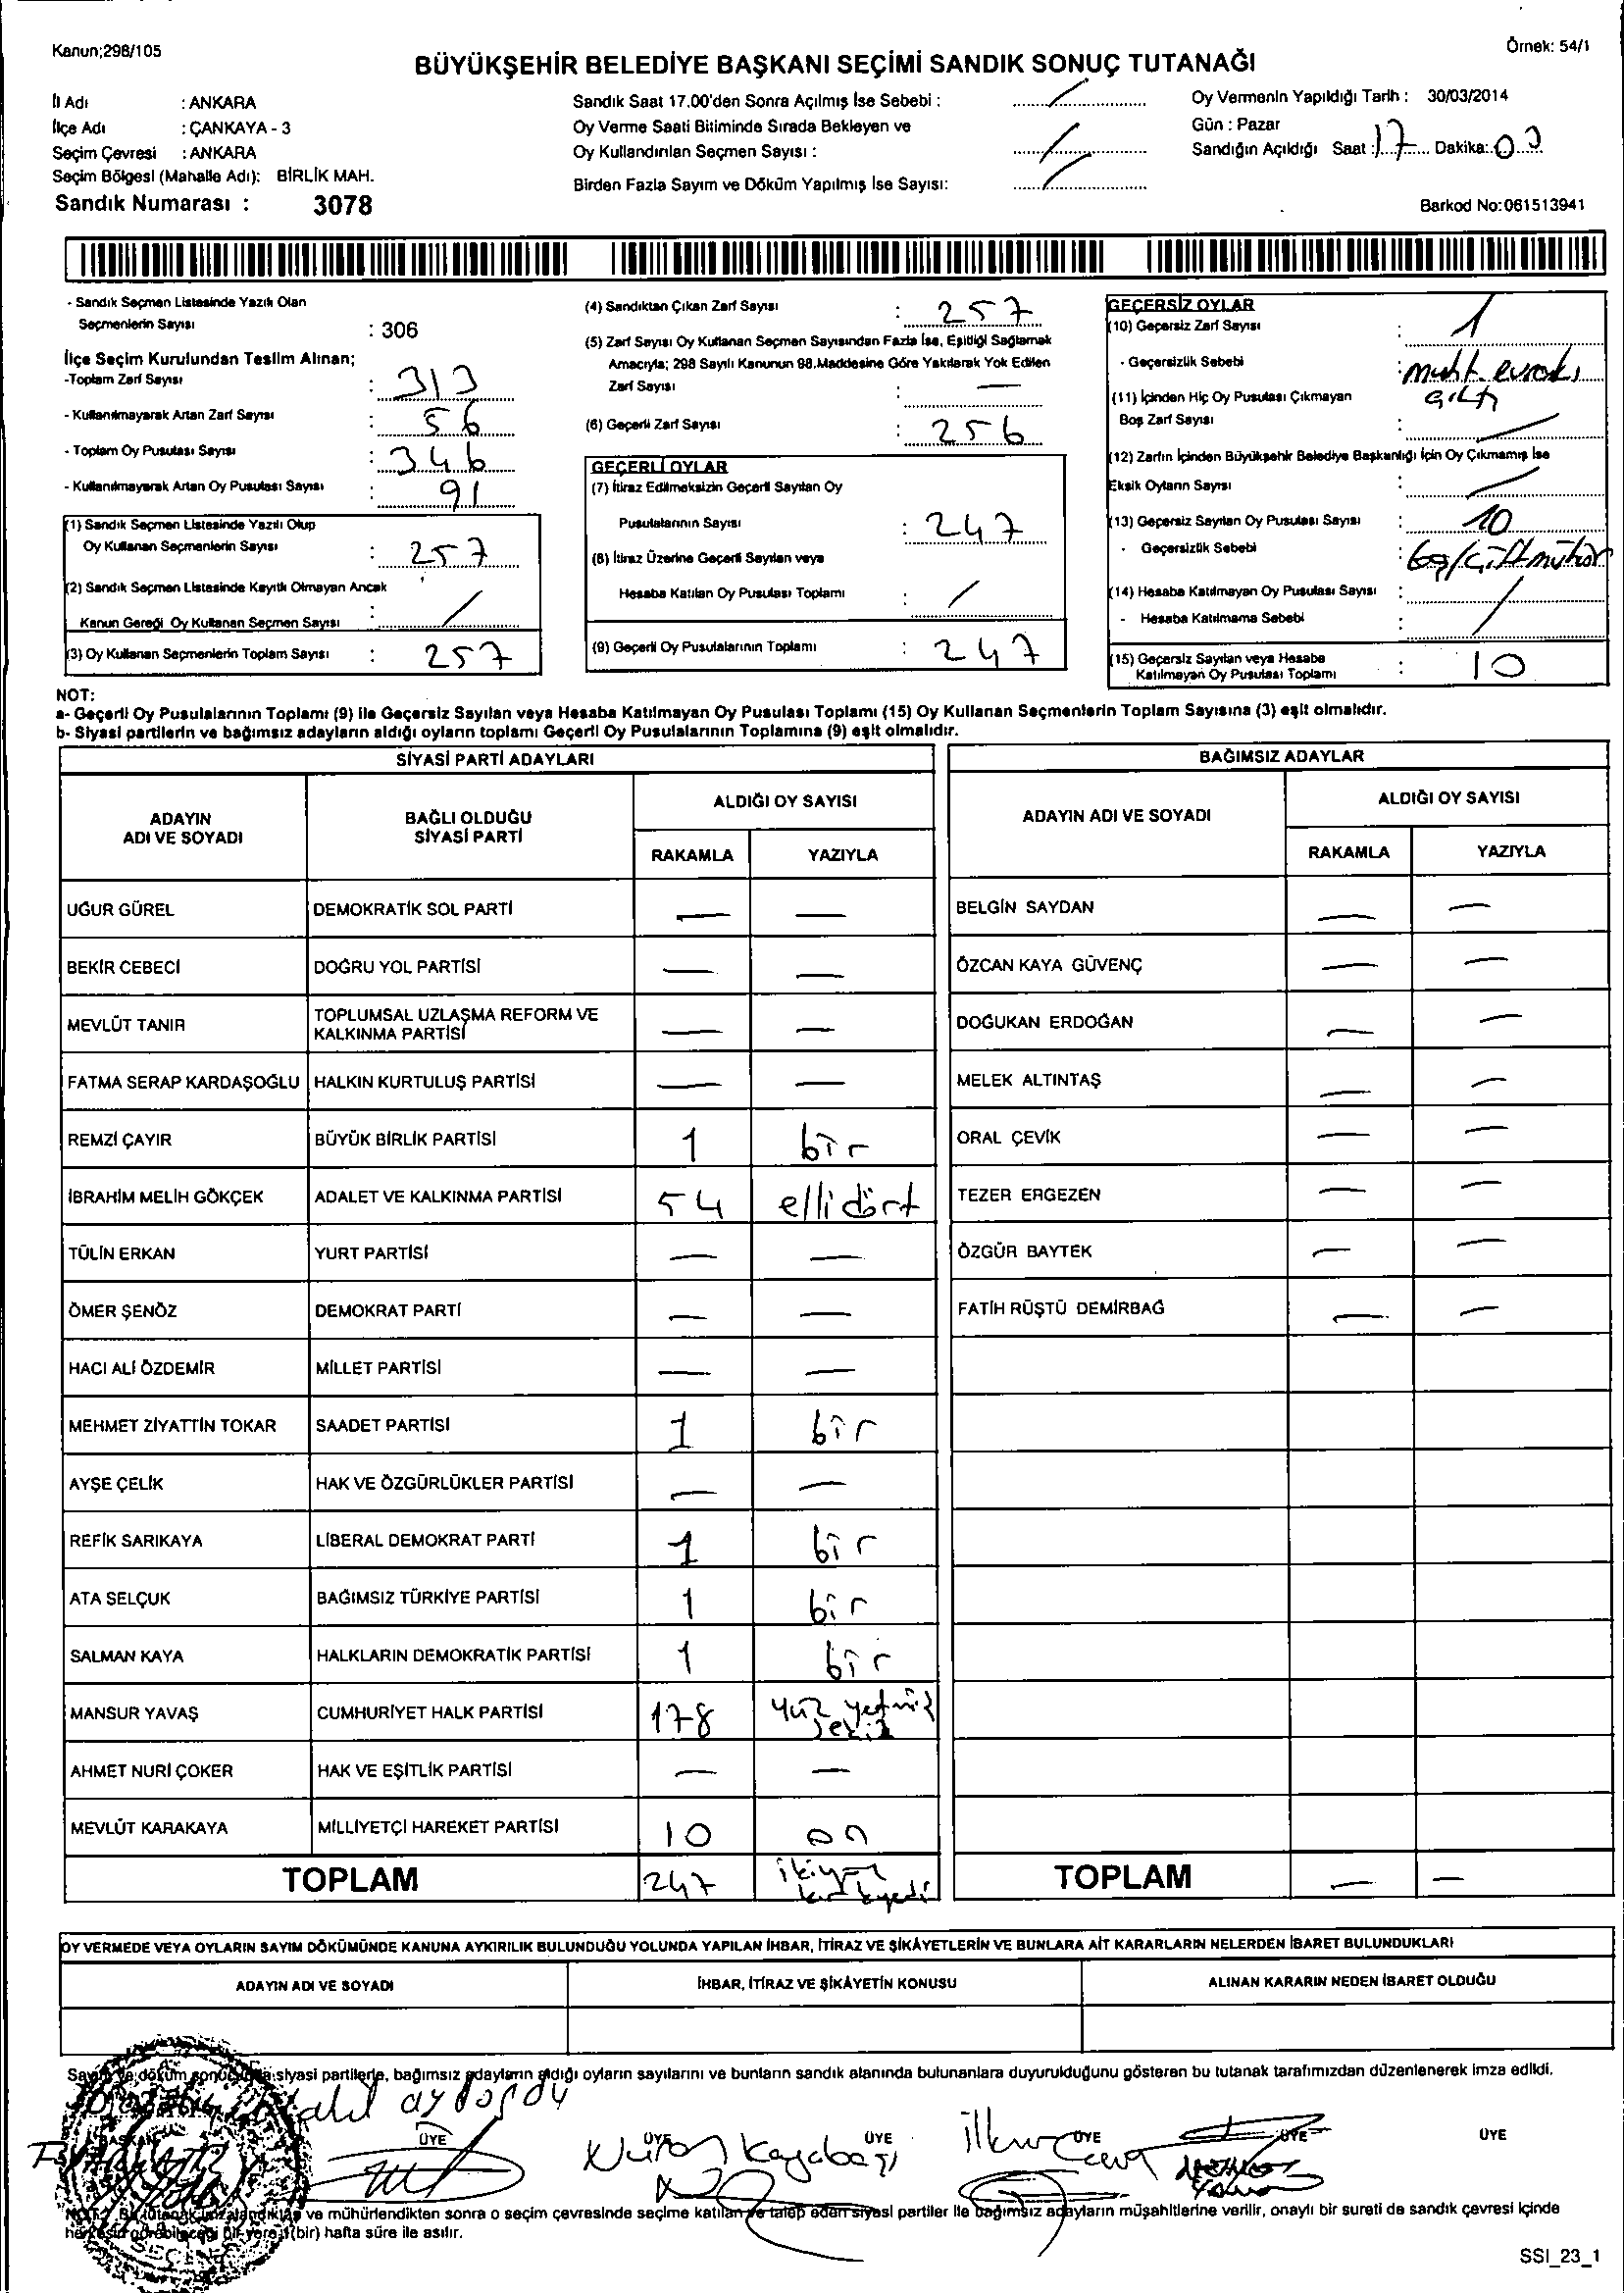 Kanun;298/105
Örnek: 54/1
BÜYÜKŞEHİR BELEDİYE BAŞKANI SEÇİMİ SANDIK SONUÇ TUTANAĞI
İl Adı : ANKARA
İlçe Adı : ÇANKAYA - 3
Seçim Çevresi : ANKARA
Seçim Bölgesi (Mahalle Adı): BİRLİK MAH.
Sandık Numarası : 3078
Sandık Saat 17.00'den Sonra Açılmış İse Sebebi : /
Oy Verme Saati Bitiminde Sırada Bekleyen ve
Oy Kullandırılan Seçmen Sayısı : /
Birden Fazla Sayım ve Döküm Yapılmış İse Sayısı: /
Oy Vermenin Yapıldığı Tarih : 30/03/2014
Gün : Pazar
Sandığın Açıldığı Saat : 17 Dakika: 03
Barkod No:061513941
- Sandık Seçmen Listesinde Yazılı Olan
Seçmenlerin Sayısı : 306
İlçe Seçim Kurulundan Teslim Alınan;
-Toplam Zarf Sayısı : 313
- Kullanılmayarak Artan Zarf Sayısı : 56
- Toplam Oy Pusulası Sayısı : 346
- Kullanılmayarak Artan Oy Pusulası Sayısı : 91
(1) Sandık Seçmen Listesinde Yazılı Olup
Oy Kullanan Seçmenlerin Sayısı : 257
(2) Sandık Seçmen Listesinde Kayıtlı Olmayan Ancak
Kanun Gereği Oy Kullanan Seçmen Sayısı : /
(3) Oy Kullanan Seçmenlerin Toplam Sayısı : 257
(4) Sandıktan Çıkan Zarf Sayısı : 257
(5) Zarf Sayısı Oy Kullanan Seçmen Sayısından Fazla İse, Eşitliği Sağlamak
Amacıyla; 298 Sayılı Kanunun 98.Maddesine Göre Yakılarak Yok Edilen
Zarf Sayısı : —
(6) Geçerli Zarf Sayısı : 256
GEÇERLİ OYLAR
(7) İtiraz Edilmeksizin Geçerli Sayılan Oy
Pusulalarının Sayısı : 247
(8) İtiraz Üzerine Geçerli Sayılan veya
Hesaba Katılan Oy Pusulası Toplamı : /
(9) Geçerli Oy Pusulalarının Toplamı : 247
GEÇERSİZ OYLAR
(10) Geçersiz Zarf Sayısı : 1
- Geçersizlik Sebebi : muht. evrakı
çıktı
(11) İçinden Hiç Oy Pusulası Çıkmayan
Boş Zarf Sayısı : /
(12) Zarfın İçinden Büyükşehir Belediye Başkanlığı İçin Oy Çıkmamış İse
Eksik Oyların Sayısı : /
(13) Geçersiz Sayılan Oy Pusulası Sayısı : 10
- Geçersizlik Sebebi : boş/çift mühür
(14) Hesaba Katılmayan Oy Pusulası Sayısı :
- Hesaba Katılmama Sebebi : /
(15) Geçersiz Sayılan veya Hesaba
Katılmayan Oy Pusulası Toplamı : 10
NOT:
a- Geçerli Oy Pusulalarının Toplamı (9) ile Geçersiz Sayılan veya Hesaba Katılmayan Oy Pusulası Toplamı (15) Oy Kullanan Seçmenlerin Toplam Sayısına (3) eşit olmalıdır.
b- Siyasi partilerin ve bağımsız adayların aldığı oyların toplamı Geçerli Oy Pusulalarının Toplamına (9) eşit olmalıdır.
SİYASİ PARTİ ADAYLARI
ADAYIN ADI VE SOYADI BAĞLI OLDUĞU SİYASİ PARTİ ALDIĞI OY SAYISI
RAKAMLA YAZIYLA
UĞUR GÜREL DEMOKRATİK SOL PARTİ — —
BEKİR CEBECİ DOĞRU YOL PARTİSİ — —
MEVLÜT TANIR TOPLUMSAL UZLAŞMA REFORM VE KALKINMA PARTİSİ — —
FATMA SERAP KARDAŞOĞLU HALKIN KURTULUŞ PARTİSİ — —
REMZİ ÇAYIR BÜYÜK BİRLİK PARTİSİ 1 bir
İBRAHİM MELİH GÖKÇEK ADALET VE KALKINMA PARTİSİ 54 ellidört
TÜLİN ERKAN YURT PARTİSİ — —
ÖMER ŞENÖZ DEMOKRAT PARTİ — —
HACI ALİ ÖZDEMİR MİLLET PARTİSİ — —
MEHMET ZİYATTİN TOKAR SAADET PARTİSİ 1 bir
AYŞE ÇELİK HAK VE ÖZGÜRLÜKLER PARTİSİ — —
REFİK SARIKAYA LİBERAL DEMOKRAT PARTİ 1 bir
ATA SELÇUK BAĞIMSIZ TÜRKİYE PARTİSİ 1 bir
SALMAN KAYA HALKLARIN DEMOKRATİK PARTİSİ 1 bir
MANSUR YAVAŞ CUMHURİYET HALK PARTİSİ 178 yüz yetmiş sekiz
AHMET NURİ ÇOKER HAK VE EŞİTLİK PARTİSİ — —
MEVLÜT KARAKAYA MİLLİYETÇİ HAREKET PARTİSİ 10 on
TOPLAM 247 ikiyüz kırkyedi
BAĞIMSIZ ADAYLAR
ADAYIN ADI VE SOYADI ALDIĞI OY SAYISI
RAKAMLA YAZIYLA
BELGİN SAYDAN — —
ÖZCAN KAYA GÜVENÇ — —
DOĞUKAN ERDOĞAN — —
MELEK ALTINTAŞ — —
ORAL ÇEVİK — —
TEZER ERGEZEN — —
ÖZGÜR BAYTEK — —
FATİH RÜŞTÜ DEMİRBAĞ — —
TOPLAM — —
OY VERMEDE VEYA OYLARIN SAYIM DÖKÜMÜNDE KANUNA AYKIRILIK BULUNDUĞU YOLUNDA YAPILAN İHBAR, İTİRAZ VE ŞİKÂYETLERİN VE BUNLARA AİT KARARLARIN NELERDEN İBARET BULUNDUKLARI
ADAYIN ADI VE SOYADI İHBAR, İTİRAZ VE ŞİKÂYETİN KONUSU ALINAN KARARIN NEDEN İBARET OLDUĞU
Sayım ve döküm sonucunda siyasi partilerle, bağımsız adayların aldığı oyların sayılarını ve bunların sandık alanında bulunanlara duyurulduğunu gösteren bu tutanak tarafımızdan düzenlenerek imza edildi.
BAŞKAN ÜYE ÜYE ÜYE ÜYE ÜYE ÜYE
Nuran Kayabaşı
ve mühürlendikten sonra o seçim çevresinde seçime katılan ve talep eden siyasi partiler ile bağımsız adayların müşahitlerine verilir, onaylı bir sureti de sandık çevresi içinde
herkesin görebileceği bir yere 1(bir) hafta süre ile asılır.
SSI_23_1